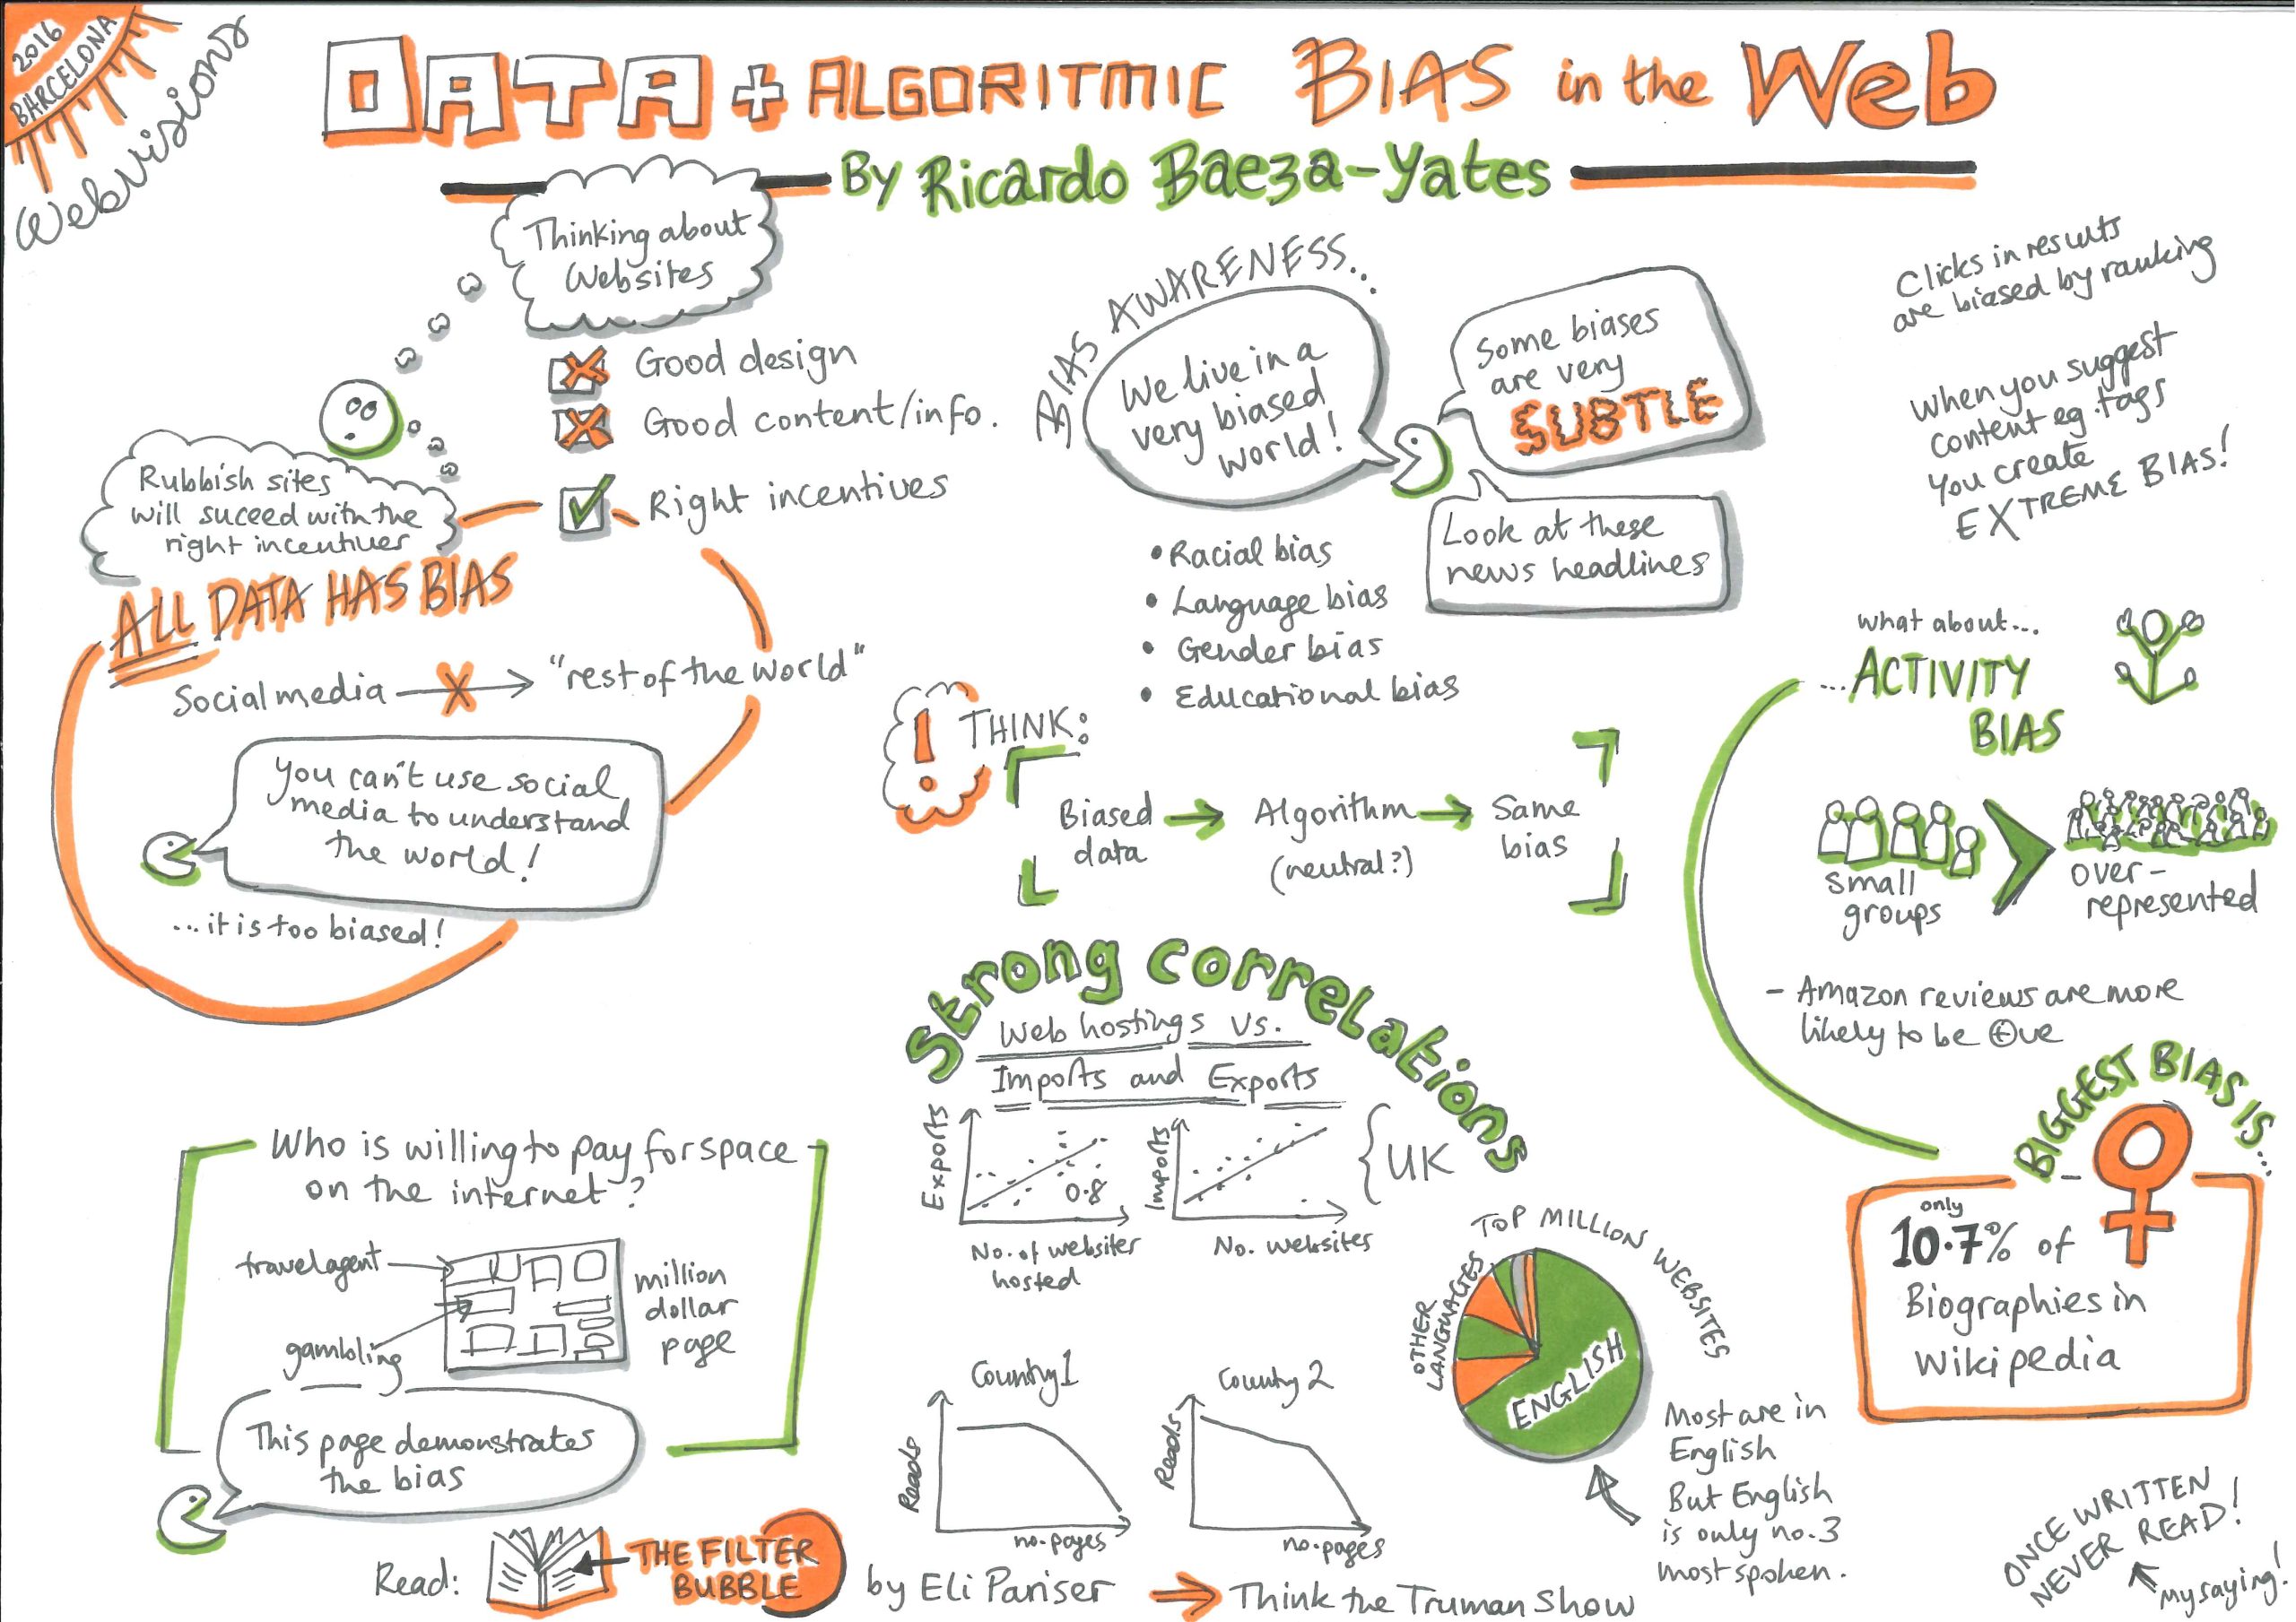 2016
BARCELONA
Webvisions
DATA + ALGORITMIC BIAS in the Web
By Ricardo Baeza-Yates
Thinking about
Websites
Good design
Good content/info.
Right incentives
Rubbish sites
will suceed with the
right incentives
ALL DATA HAS BIAS
Social media
"rest of the world"
You can't use social
media to understand
the world!
...it is too biased!
Who is willing to pay for space
on the internet?
travel agent
gambling
million
dollar
page
This page demonstrates
the bias
Read:
THE FILTER
BUBBLE
by Eli Pariser
Think the Truman Show
BIAS AWARENESS...
We live in a
very biased
world!
Some biases
are very
SUBTLE
Look at these
news headlines
• Racial bias
• Language bias
• Gender bias
• Educational bias
! THINK:
Biased
data
Algorithm
(neutral?)
Same
bias
Strong correlations
Web hostings vs.
Imports and Exports
Exports
0.8
No. of websites
hosted
Imports
No. websites
UK
Country 1
Reads
no. pages
Country 2
Reads
no. pages
TOP MILLION WEBSITES
OTHER
LANGUAGES
ENGLISH
Most are in
English
But English
is only no.3
most spoken.
Clicks in results
are biased by ranking
When you suggest
content eg. tags
you create
EXTREME BIAS!
what about...
...ACTIVITY
BIAS
small
groups
over-
represented
- Amazon reviews are more
likely to be ⊕ve
BIGGEST BIAS IS...
only
10.7% of
Biographies in
Wikipedia
ONCE WRITTEN
NEVER READ!
my saying!